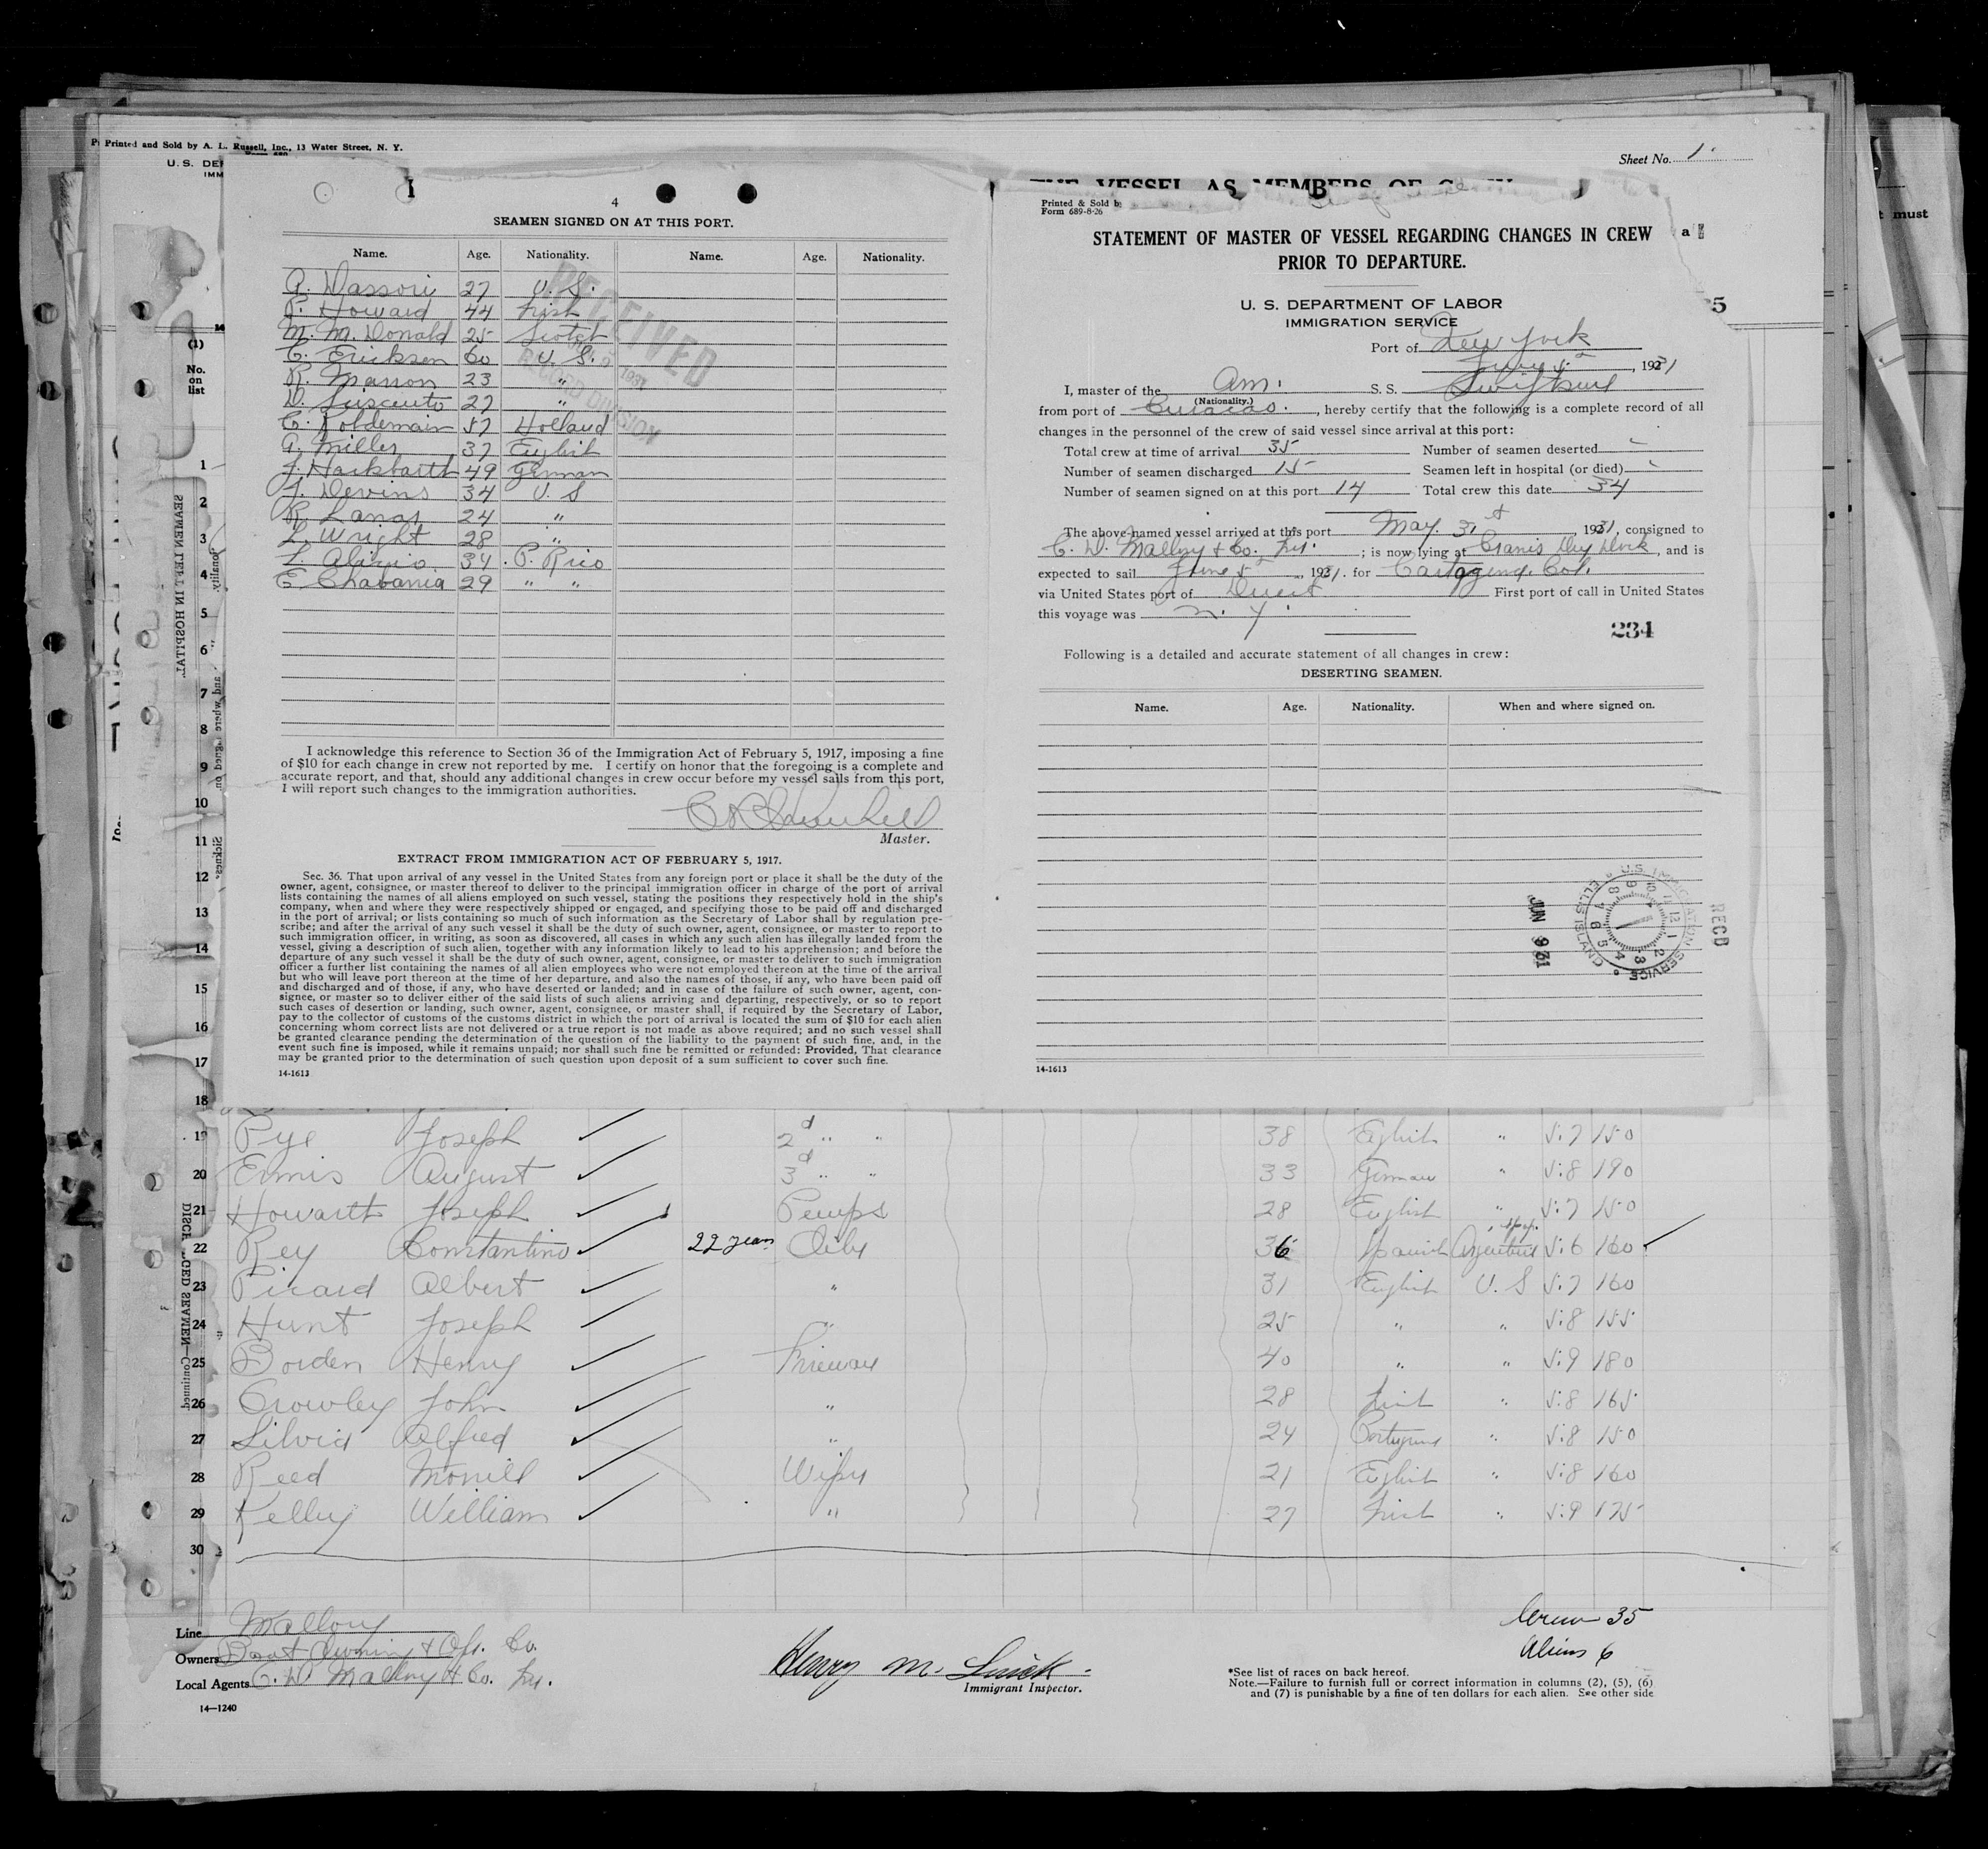 Printed and Sold by A. L. Russell, Inc., 13 Water Street, N. Y.
Sheet No. 1
U. S. DE
IMM
4
SEAMEN SIGNED ON AT THIS PORT.
Name. Age. Nationality. Name. Age. Nationality.
A. Dassori 27 U. S.
P. Howard 44 Irish
M. McDonald 25 Scotch
C. Ericksen 60 U. S.
R. Masson 23 "
27 "
57 Holland
A. Miller 37 English
J. Hackbarth 49 German
J. Devins 34 U. S
R. Lanas 24 "
L. Wright 28 "
34 P. Rico
E. Chabania 29 " "
RECEIVED
1931
RECORD DIVISION
I acknowledge this reference to Section 36 of the Immigration Act of February 5, 1917, imposing a fine
of $10 for each change in crew not reported by me. I certify on honor that the foregoing is a complete and
accurate report, and that, should any additional changes in crew occur before my vessel sails from this port,
I will report such changes to the immigration authorities.
Master.
EXTRACT FROM IMMIGRATION ACT OF FEBRUARY 5, 1917.
Sec. 36. That upon arrival of any vessel in the United States from any foreign port or place it shall be the duty of the
owner, agent, consignee, or master thereof to deliver to the principal immigration officer in charge of the port of arrival
lists containing the names of all aliens employed on such vessel, stating the positions they respectively hold in the ship's
company, when and where they were respectively shipped or engaged, and specifying those to be paid off and discharged
in the port of arrival; or lists containing so much of such information as the Secretary of Labor shall by regulation pre-
scribe; and after the arrival of any such vessel it shall be the duty of such owner, agent, consignee, or master to report to
such immigration officer, in writing, as soon as discovered, all cases in which any such alien has illegally landed from the
vessel, giving a description of such alien, together with any information likely to lead to his apprehension; and before the
departure of any such vessel it shall be the duty of such owner, agent, consignee, or master to deliver to such immigration
officer a further list containing the names of all alien employees who were not employed thereon at the time of the arrival
but who will leave port thereon at the time of her departure, and also the names of those, if any, who have been paid off
and discharged and of those, if any, who have deserted or landed; and in case of the failure of such owner, agent, con-
signee, or master so to deliver either of the said lists of such aliens arriving and departing, respectively, or so to report
such cases of desertion or landing, such owner, agent, consignee, or master shall, if required by the Secretary of Labor,
pay to the collector of customs of the customs district in which the port of arrival is located the sum of $10 for each alien
concerning whom correct lists are not delivered or a true report is not made as above required; and no such vessel shall
be granted clearance pending the determination of the question of the liability to the payment of such fine, and, in the
event such fine is imposed, while it remains unpaid; nor shall such fine be remitted or refunded: Provided, That clearance
may be granted prior to the determination of such question upon deposit of a sum sufficient to cover such fine.
14-1613
THE VESSEL AS MEMBERS OF CREW
Printed & Sold b
Form 689-8-26
STATEMENT OF MASTER OF VESSEL REGARDING CHANGES IN CREW
PRIOR TO DEPARTURE.
U. S. DEPARTMENT OF LABOR
IMMIGRATION SERVICE
Port of New York
, 1931
I, master of the Am. S. S. Swiftsure
(Nationality.)
from port of Curacao. , hereby certify that the following is a complete record of all
changes in the personnel of the crew of said vessel since arrival at this port:
Total crew at time of arrival 35 Number of seamen deserted -
Number of seamen discharged 15 Seamen left in hospital (or died) -
Number of seamen signed on at this port 14 Total crew this date 34
The above-named vessel arrived at this port May 31st 1931, consigned to
C. D. Mallory & Co. Inc. ; is now lying at Cranes Dry Dock, and is
expected to sail June 5th, 1931. for Cartagena. Col.
via United States port of Direct First port of call in United States
this voyage was N. Y.
234
Following is a detailed and accurate statement of all changes in crew:
DESERTING SEAMEN.
Name. Age. Nationality. When and where signed on.
RECD
U.S. IMMIGRATION SERVICE
ELLIS ISLAND
JUN 9 31
14-1613
(1)
No.
on
list
1
2
3
4
5
6
7
8
9
10
11
12
13
14
15
16
17
18
SEAMEN LEFT IN HOSPITAL
DISCHARGED SEAMEN—Continued
19 Pye Joseph 2d " " 38 English " 5:7 150
20 Ennis August 3d " " 33 German " 5:8 190
21 Howarth Joseph Pumps 28 English " 5:7 150
22 Rey Constantino 22 years Oiler 36 Spanish Argentina 5:6 160
23 Picard Albert " 31 English U. S 5:7 160
24 Hunt Joseph " 25 " " 5:8 155
25 Borden Henry Fireman 40 " " 5:9 180
26 Crowley John " 28 Irish " 5:8 165
27 Silvia Alfred " 24 Portuguese " 5:8 150
28 Reed Morrill Wiper 21 English " 5:8 160
29 Kelley William " 27 Irish " 5:9 175
30
Line Mallory
Owners Boat Owning & Opr. Co.
Local Agents C. D. Mallory & Co. Inc.
14—1240
Henry M.
Immigrant Inspector.
Crew 35
Aliens 6
*See list of races on back hereof.
Note.—Failure to furnish full or correct information in columns (2), (5), (6)
and (7) is punishable by a fine of ten dollars for each alien. See other side